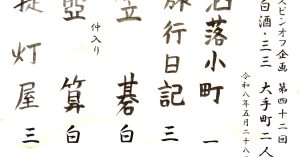 スピンオフ企画 第四十二回
白酒・三三 大手町二人
令和八年五月二十八
洒落小町 一
旅行日記 三
笠碁 白
仲入り
壺算 白
提灯屋 三